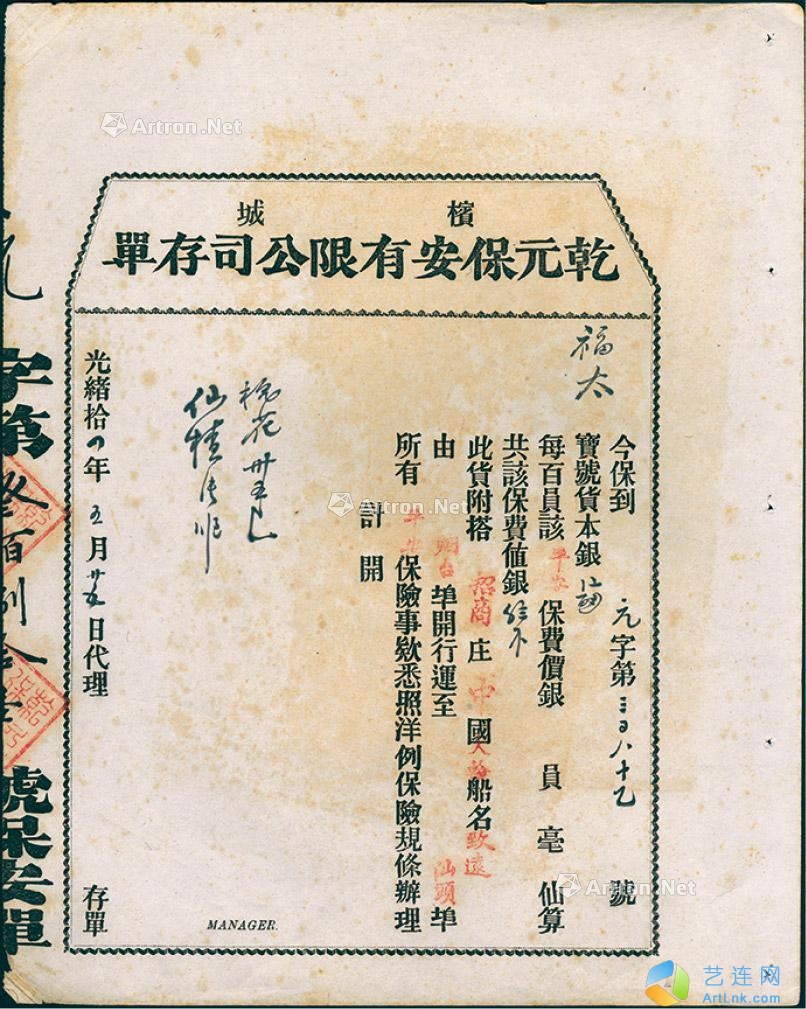 檳城
乾元保安有限公司存單
福太
今保到 元字第三百八十乙號
寶號貨本銀
每百員該平安保費價銀 員毫仙算
共該保費值銀
此貨附搭招商庄中國火輪船名致遠
由烟台埠開行運至汕頭埠
所有平安保險事欵悉照洋例保險規條辦理
計開
光緒拾四年五月廿五日代理 存單
MANAGER.
字第叁百捌拾壹號保安單
Artron.Net
Artron.Net
Artron.Net
艺连网
ArtLnk.com